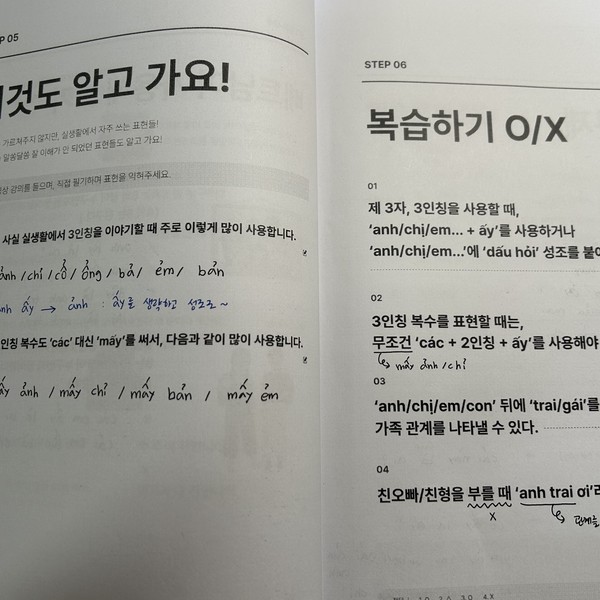 05
것도 알고 가요!
가르쳐주지 않지만, 실생활에서 자주 쓰는 표현들!
알쏭달쏭 잘 이해가 안 되었던 표현들도 알고 가요!
강의를 들으며, 직접 필기하며 표현을 익혀주세요.
사실 실생활에서 3인칭을 이야기할 때 주로 이렇게 많이 사용합니다.
ảnh / chỉ / cổ / ổng / bả / ẻm / bản
ấy → ảnh : ấy를 생략하고 성조로 ~
인칭 복수도 ‘các’ 대신 ‘mấy’를 써서, 다음과 같이 많이 사용합니다.
ảnh / mấy chỉ / mấy bản / mấy ẻm
STEP 06
복습하기 O/X
01
제 3자, 3인칭을 사용할 때,
‘anh/chị/em... + ấy’를 사용하거나
‘anh/chị/em...’에 ‘dấu hỏi’ 성조를
02
3인칭 복수를 표현할 때는,
무조건 ‘các + 2인칭 + ấy’를 사용해야
↳ mấy ảnh / chỉ
03
‘anh/chị/em/con’ 뒤에 ‘trai/gái’를
가족 관계를 나타낼 수 있다.
04
친오빠/친형을 부를 때 ‘anh trai ơi’
X
↳ 관계를